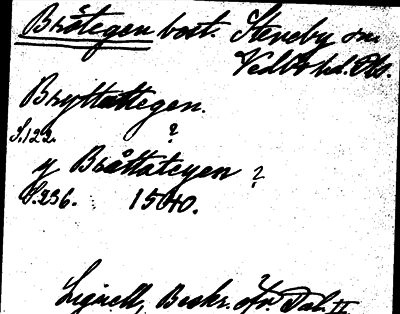 Bråtegen bost. Steneby sn.
Vedbo hd. Dls.
Bryttattegen.
S.122. ?
y Bråttateyen ?
S.236. 1540.
Lignell, Beskr. öfv. Dal. II